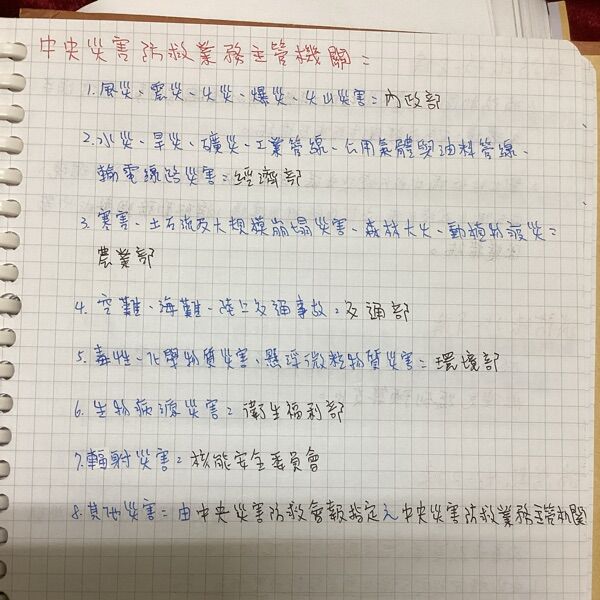 中央災害防救業務主管機關：
1.風災、震災、火災、爆災、火山災害：內政部
2.水災、旱災、礦災、工業管線、公用氣體與油料管線、
輸電線路災害：經濟部
3.寒害、土石流及大規模崩塌災害、森林大火、動植物疫災：
農業部
4.空難、海難、陸上交通事故：交通部
5.毒性、化學物質災害、懸浮微粒物質災害：環境部
6.生物病源災害：衛生福利部
7.輻射災害：核能安全委員會
8.其他災害：由中央災害防救會報指定之中央災害防救業務主管機關